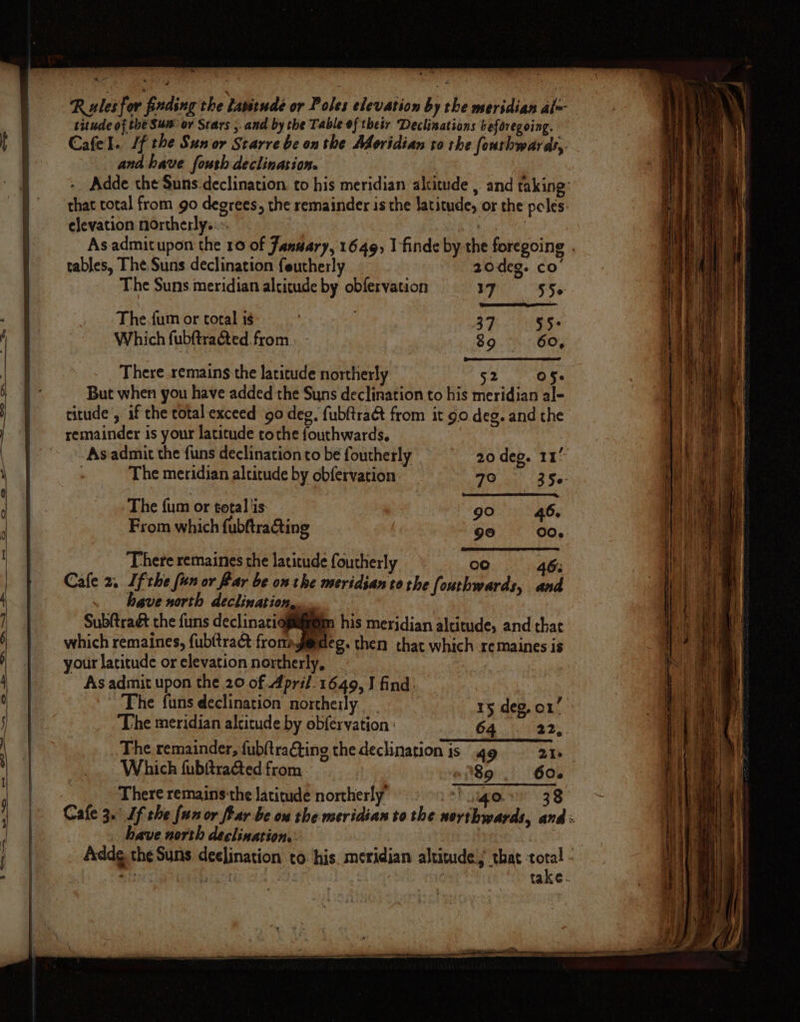 Rules for finding the Latitude or Poles elevation by the meridian al-
titude of the Sun or Stars ; and by the Table of their Declinations beforegoing.
Case 1. If the Sun or Starre be on the Meridian to the southwards,
and have south declination.
Adde the Suns declination to his meridian altitude , and taking
that total from 90 degrees, the remainder is the latitude, or the poles
elevation northerly.
As admit upon the 10 of January, 1649, I finde by the foregoing
tables, The Suns declination southerly 20 deg. 00'
The Suns meridian altitude by observation 17 55.
The sum or total is 37 55.
Which substracted from 89 60,
There remains the latitude northerly 52 05.
But when you have added the Suns declination to his meridian al-
titude , if the total exceed 90 deg. substract from it 90 deg. and the
remainder is your latitude to the southwards.
As admit the suns declination to be southerly 20 deg. 11'
The meridian altitude by observation 70 35.
The sum or total is 90 46.
From which substracting 90 00.
There remaines the latitude southerly 00 46.
Case 2. If the sun or star be on the meridian to the southwards, and
have north declination,
Substract the suns declination from his meridian altitude, and that
which remaines, substract from deg. then that which remaines is
your latitude or elevation northerly.
As admit upon the 20 of April 1649, I find
The suns declination northerly 15 deg. 01'
The meridian altitude by observation 64 22,
The remainder, substracting the declination is 49 21.
Which substracted from 89 60.
There remains the latitude northerly 40 38
Case 3. If the sun or star be on the meridian to the northwards, and
have north declination.
Adde the Suns declination to his meridian altitude, that total
take